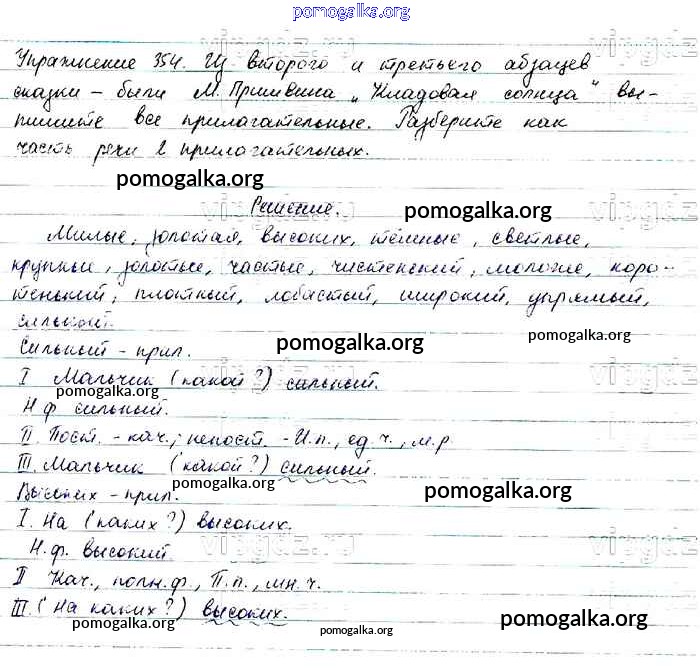 pomogalka.org
Упражнение 354. Из второго и третьего абзацев
сказки - были М. Пришвина „Кладовая солнца" вы-
пишите все прилагательные. Разберите как
часть речи 2 прилагательных.
pomogalka.org
Решение.
pomogalka.org
Милые, золотая, высоких, тёмные, светлые,
крупны, золотые, частые, чистенский, мягкие, коро-
тенький, плотный, лобастый, широкий, упрямый,
сильный.
pomogalka.org
Сильный - прил.
pomogalka.org
I Мальчик (какой?) сильный.
pomogalka.org
Н.ф сильный.
II. Пост. - кач.; непост. - И.п., ед.ч., м.р
III. Мальчик (какой?) сильный.
pomogalka.org
Высоких - прил.
pomogalka.org
I. На (каких?) высоких.
Н.ф. высокий.
vipgdz.ru
II Кач., полн.ф., П.п., мн.ч.
III. (На каких?) высоких.
pomogalka.org
pomogalka.org
pomogalka.org